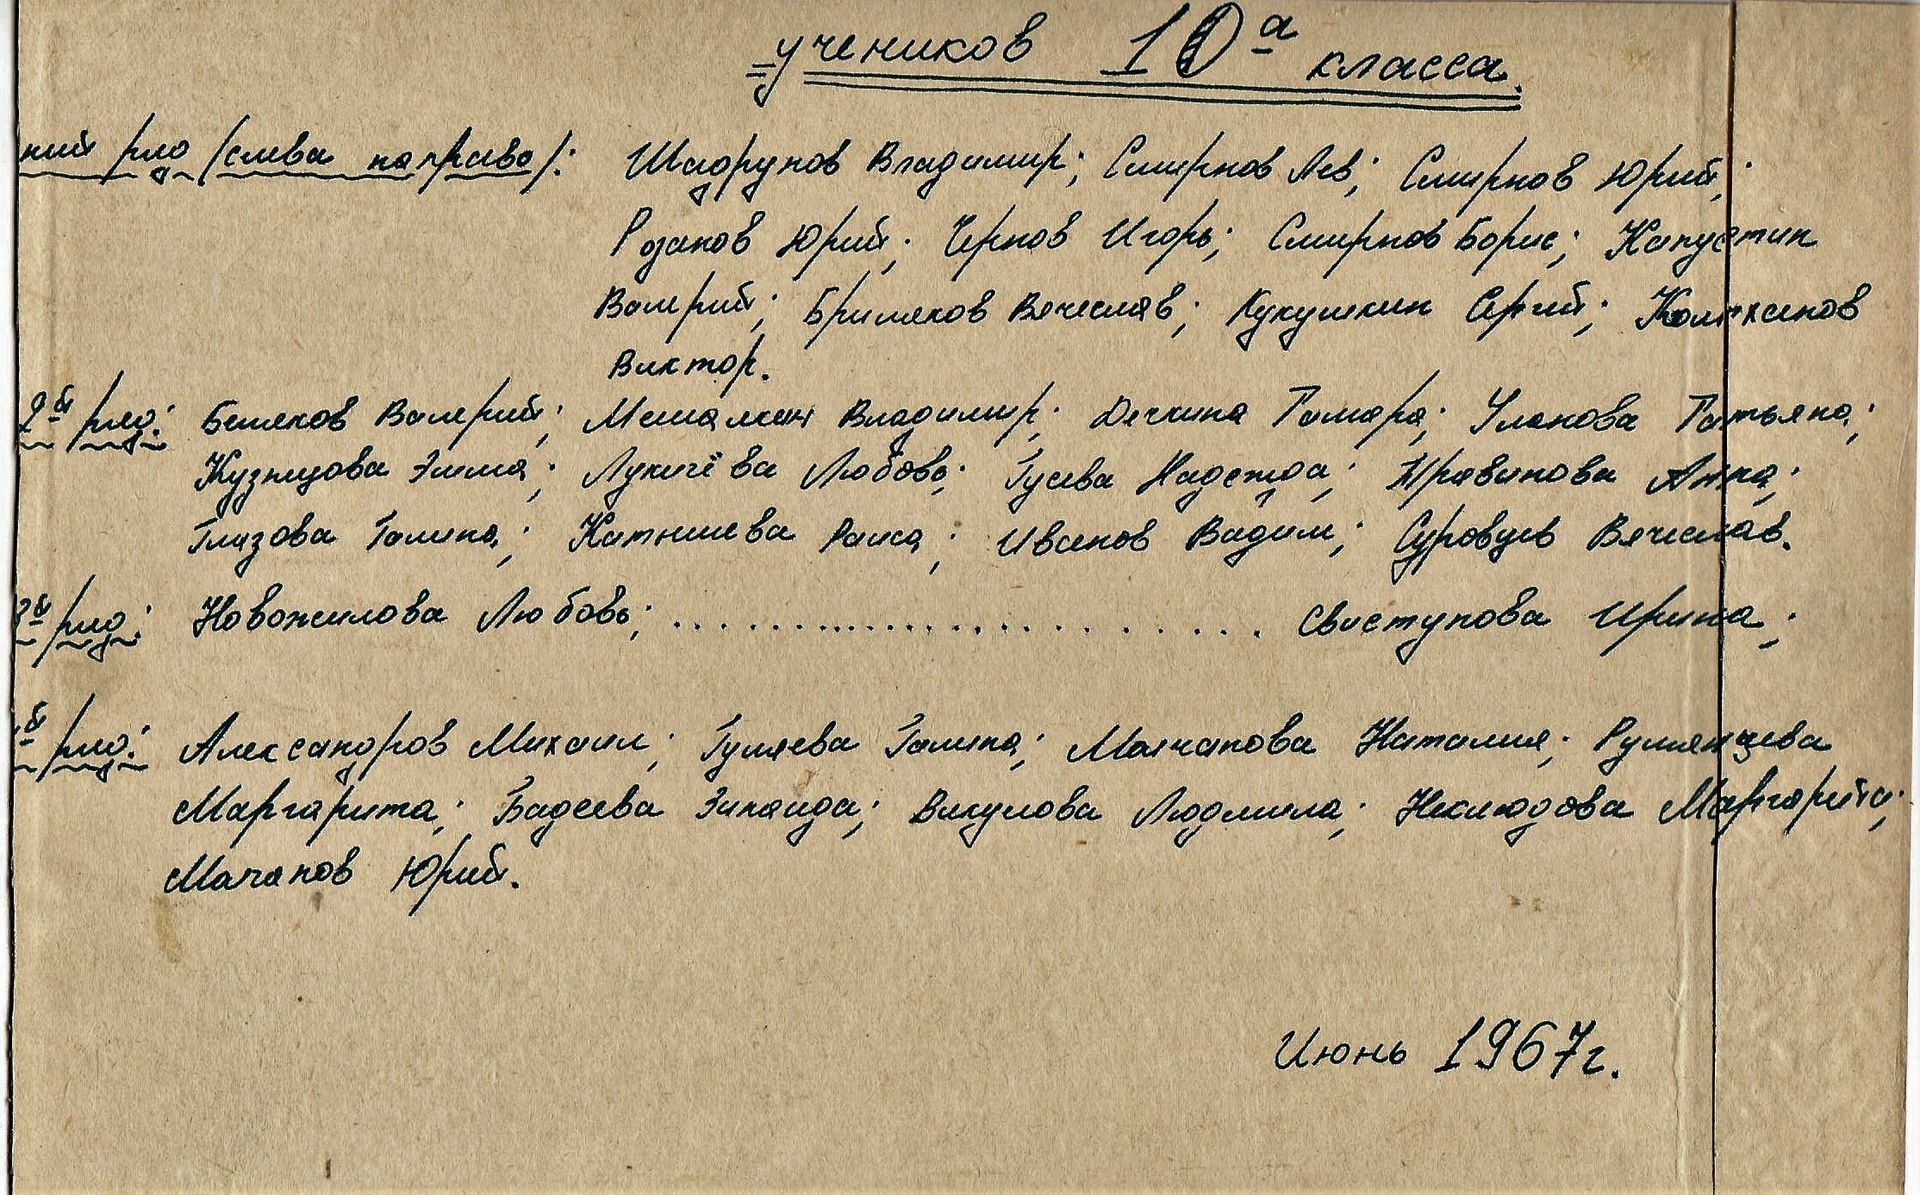 учеников 10а класса.
ний ряд (слева направо): Шадрунов Владимир; Смирнов Лев; Смирнов Юрий;
Розанов Юрий; Чернов Игорь; Смирнов Борис; Капустин
Валерий; Бриляков Вячеслав; Кукушкин Сергей; Колексанов
Виктор.
2й ряд: Беляков Валерий; Мешалкин Владимир; Дечкина Тамара; Уланова Татьяна;
Кузнецова Эмма; Лукичёва Любовь; Гусева Надежда; Травинова Анна;
Глазова Галина; Катышева Раиса; Иванов Вадим; Суровцев Вячеслав.
3й ряд: Новожилова Любовь; .......................... Свистунова Ирина;
й ряд: Александров Михаил; Гуляева Галина; Молчанова Наталия; Румянцева
Маргарита; Бадеева Зинаида; Викулова Людмила; Неклюдова Маргарита;
Мачанов Юрий.
Июнь 1967г.